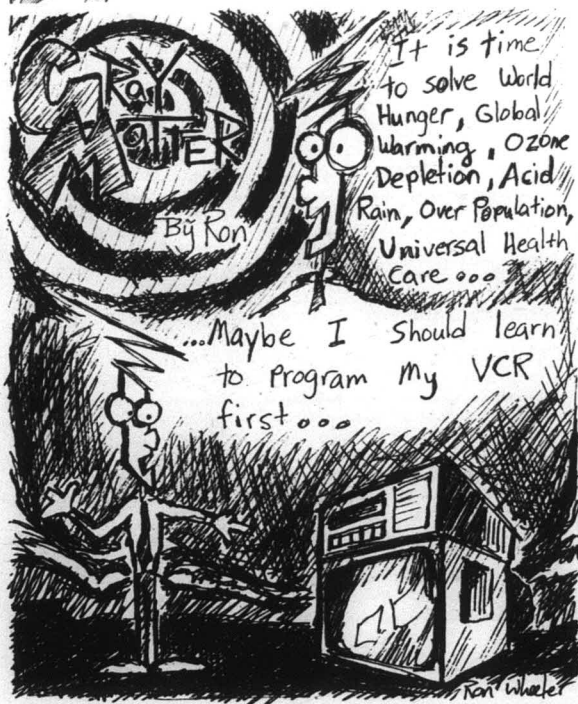 GRAY
MATTER
By Ron
It is time
to solve World
Hunger, Global
Warming, Ozone
Depletion, Acid
Rain, Over Population,
Universal Health
Care ...
...Maybe I Should learn
to Program My VCR
first...
Ron Wheeler